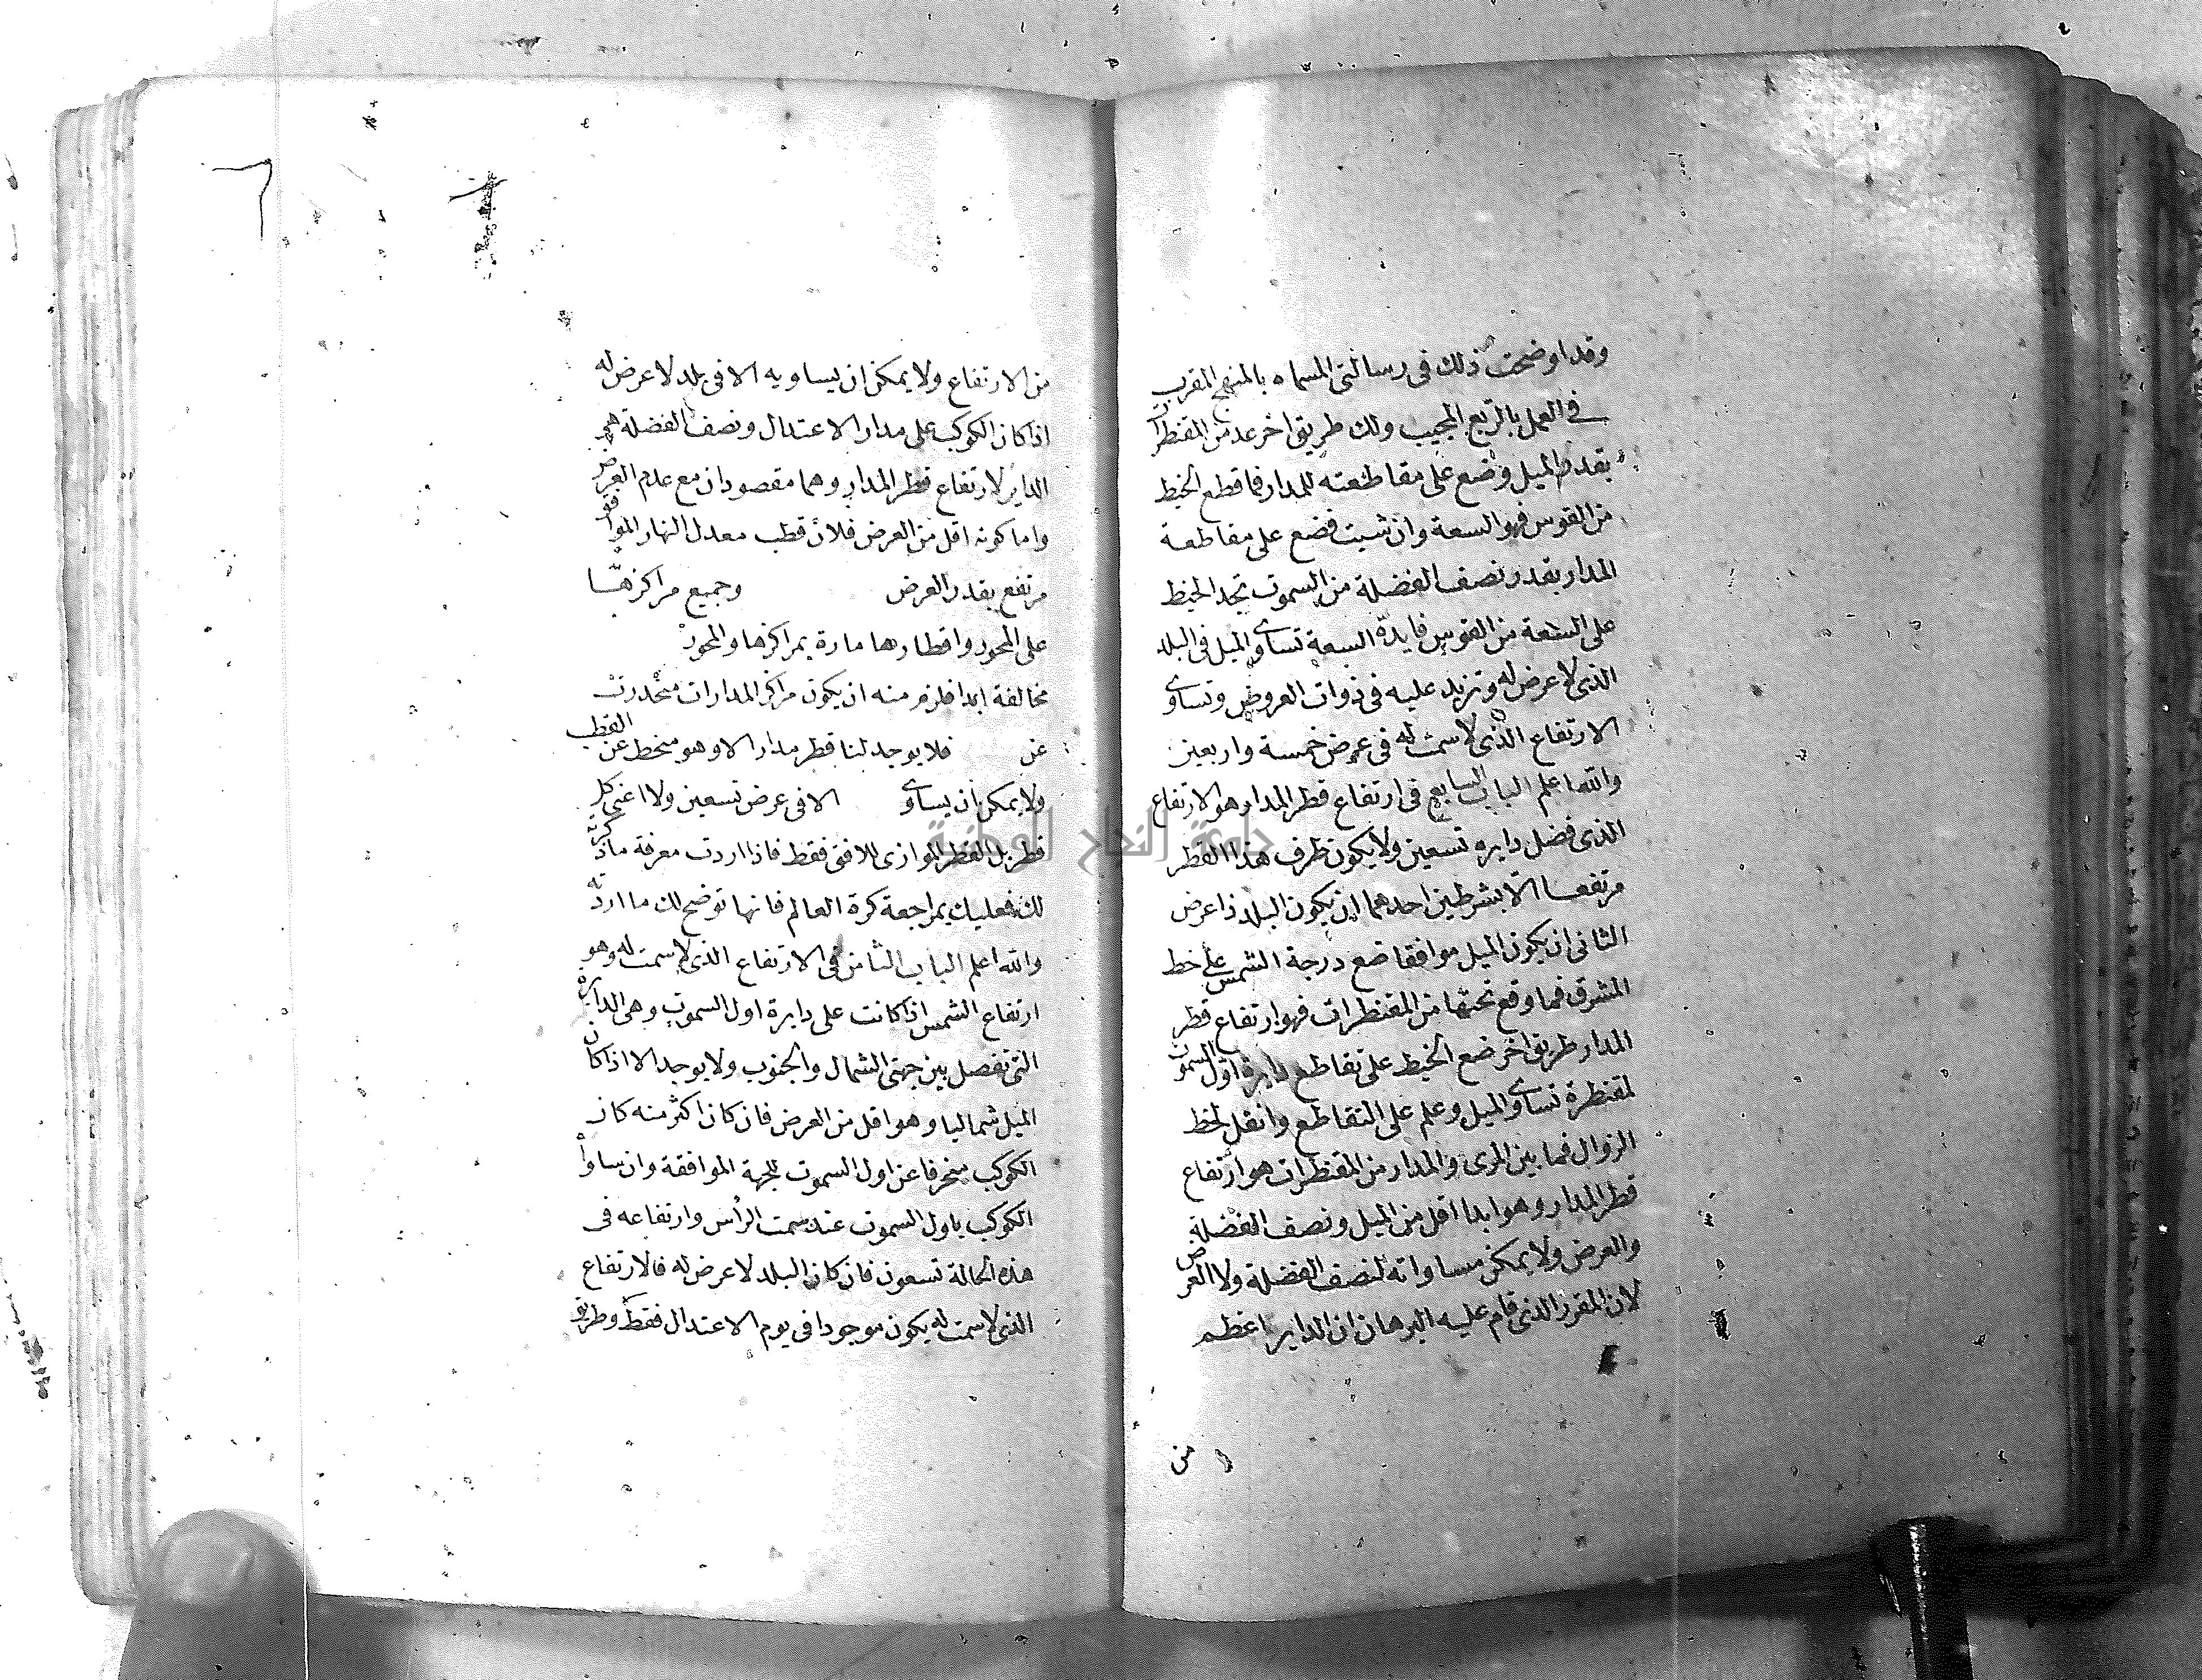 وقد اوضحت ذلك فى رسالتى المسماه بالمنهج المقرب
فى العمل بالربع المجيب ولك طريق اخر عد من المقنطرات
بقدر الميل وضع على مقاطعته للمدار فما قطع الخيط
من القوس فهو السعة وان شيت فضع على مقاطعة
المدار بقدر نصف الفضلة من السموت تجد الخيط
على السعة من القوس فايدة السعة تساوى الميل فى البلد
الذى لا عرض له وتزيد عليه فى ذوات العروض وتساوى
الارتفاع الذى لا سمت له فى عرض خمسة واربعين
والله اعلم الباب السابع فى ارتفاع قطر المدار هو الارتفاع
الذى فضل دايره تسعين ولا يكون طرف هذا القطر
مرتفعا الا بشرطين احدهما ان يكون البلد ذا عرض
الثانى ان يكون الميل موافقا ضع درجة الشمس على خط
المشرق فما وقع تحتها من المقنطرات فهو ارتفاع قطر
المدار طريق اخر ضع الخيط على تقاطع دايرة اول السموت
لمقنطرة تساوى الميل وعلم على التقاطع وانقل لخط
الزوال فما بين المرى والمدار من المقنطرات هو ارتفاع
قطر المدار وهو ابدا اقل من الميل ونصف الفضلة
والعرض ولا يمكن مساواته لنصف الفضلة ولا العرض
لان المقرر الذى قام عليه البرهان ان الداير اعظم
من
من الارتفاع ولا يمكن ان يساويه الا فى بلد لا عرض له
اذا كان الكوكب على مدار الاعتدال ونصف الفضلة هى
الداير لارتفاع قطر المدار وهما مقصودان مع عدم العرض
واما كونه اقل من العرض فلان قطب معدل النهار الموافق
مرتفع بقدر العرض وجميع مراكزها
على المحور واقطارها مارة بمراكزها والمحور
مخالفة ابدا فلزم منه ان يكون مراكز المدارات منحدرت
عن القطب فلا يوجد لنا قطر مدار الا وهو منحط عن
ولا يمكن ان يساوى الا فى عرض تسعين ولا اعنى كل
قطر بل القطر الموازى للافق فقط فاذا اردت معرفة ما ذكرته
لك فعليك بمراجعة كرة العالم فانها توضح لك ما اردته
والله اعلم الباب الثامن فى الارتفاع الذى لا سمت له وهو
ارتفاع الشمس اذا كانت على دايرة اول السموت وهى الدايرة
التى تفصل بين جهتى الشمال والجنوب ولا يوجد الا اذا كان
الميل شماليا وهو اقل من العرض فان كان اكثر منه كان
الكوكب منحرفا عن اول السموت للجهة الموافقة وان ساواه
الكوكب باول السموت عند سمت الراس وارتفاعه فى
هذه الحالة تسعون فان كان البلد لا عرض له فالارتفاع
الذى لا سمت له يكون موجودا فى يوم الاعتدال فقط وطريقه
جامعة النجاح الوطنية